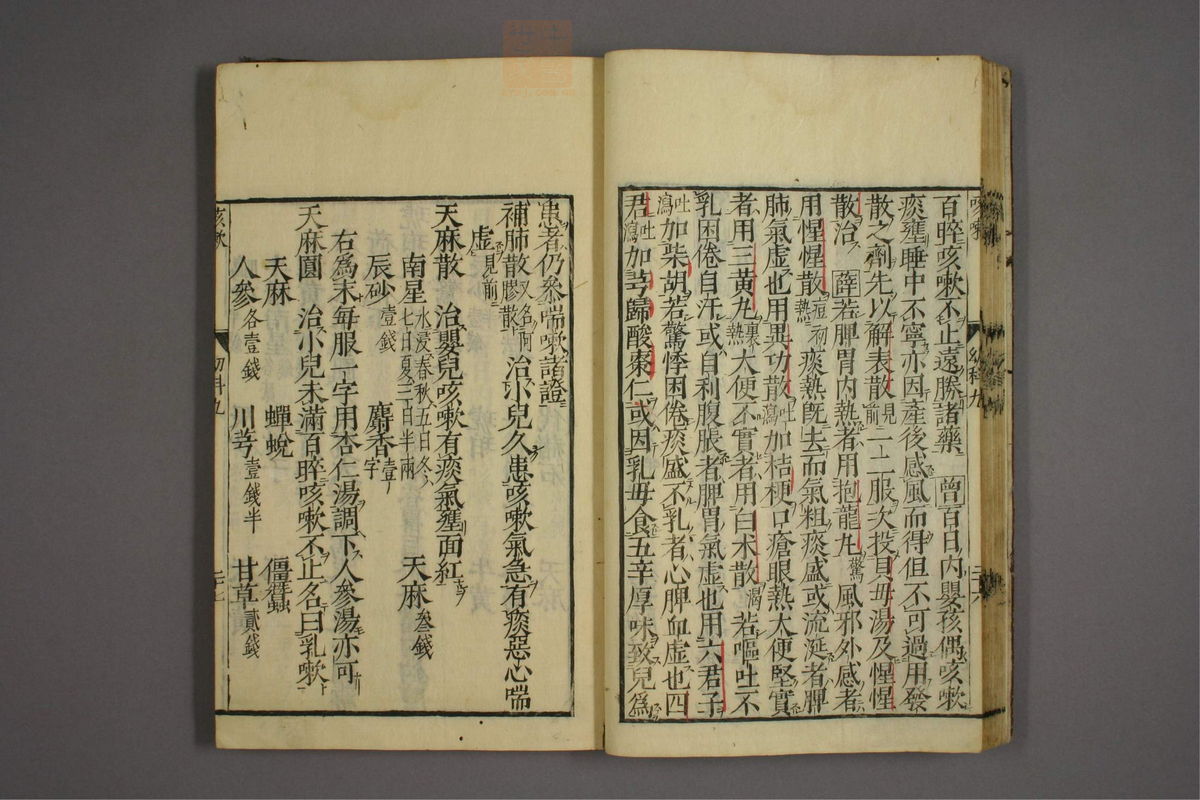 百晬咳嗽不止遠勝諸藥 曾百日內嬰孩偶咳嗽
痰壅睡中不寧亦因產後感風而得但不可過用發
散之劑先以解表散見前一二服次投貝毋湯及惺惺
散治 薛若脾胃內熱者用抱龍丸驚風邪外感者
用惺惺散痘初熱痰熱既去而氣粗痰盛或流涎者脾
肺氣虛也用異功散吐瀉加桔梗口瘡眼熱大便堅實
者用三黃丸裏熱大便不實者用白术散渴若嘔吐不
乳困倦自汗或自利腹脹者脾胃氣虛也用六君子
吐瀉加柴胡若驚悸困倦痰盛不乳者心脾血虛也四
君吐瀉加芎歸酸棗仁或因乳毋食五辛厚味致兒爲
患者仍叅喘嗽諸證
補肺散又名阿膠散 治小兒久患咳嗽氣急有痰惡心喘
虛見前
天麻散 治嬰兒咳嗽有痰氣壅面紅
南星水浸春秋五日冬七日夏三日半兩 天麻叄錢
辰砂壹錢 麝香壹字
右爲末每服一字用杏仁湯調下人參湯亦可
天麻圓 治小兒未滿百晬咳嗽不止名曰乳嗽
天麻 蟬蛻 僵蠶
人參各壹錢 川芎壹錢半 甘草貳錢
咳嗽
幼科九